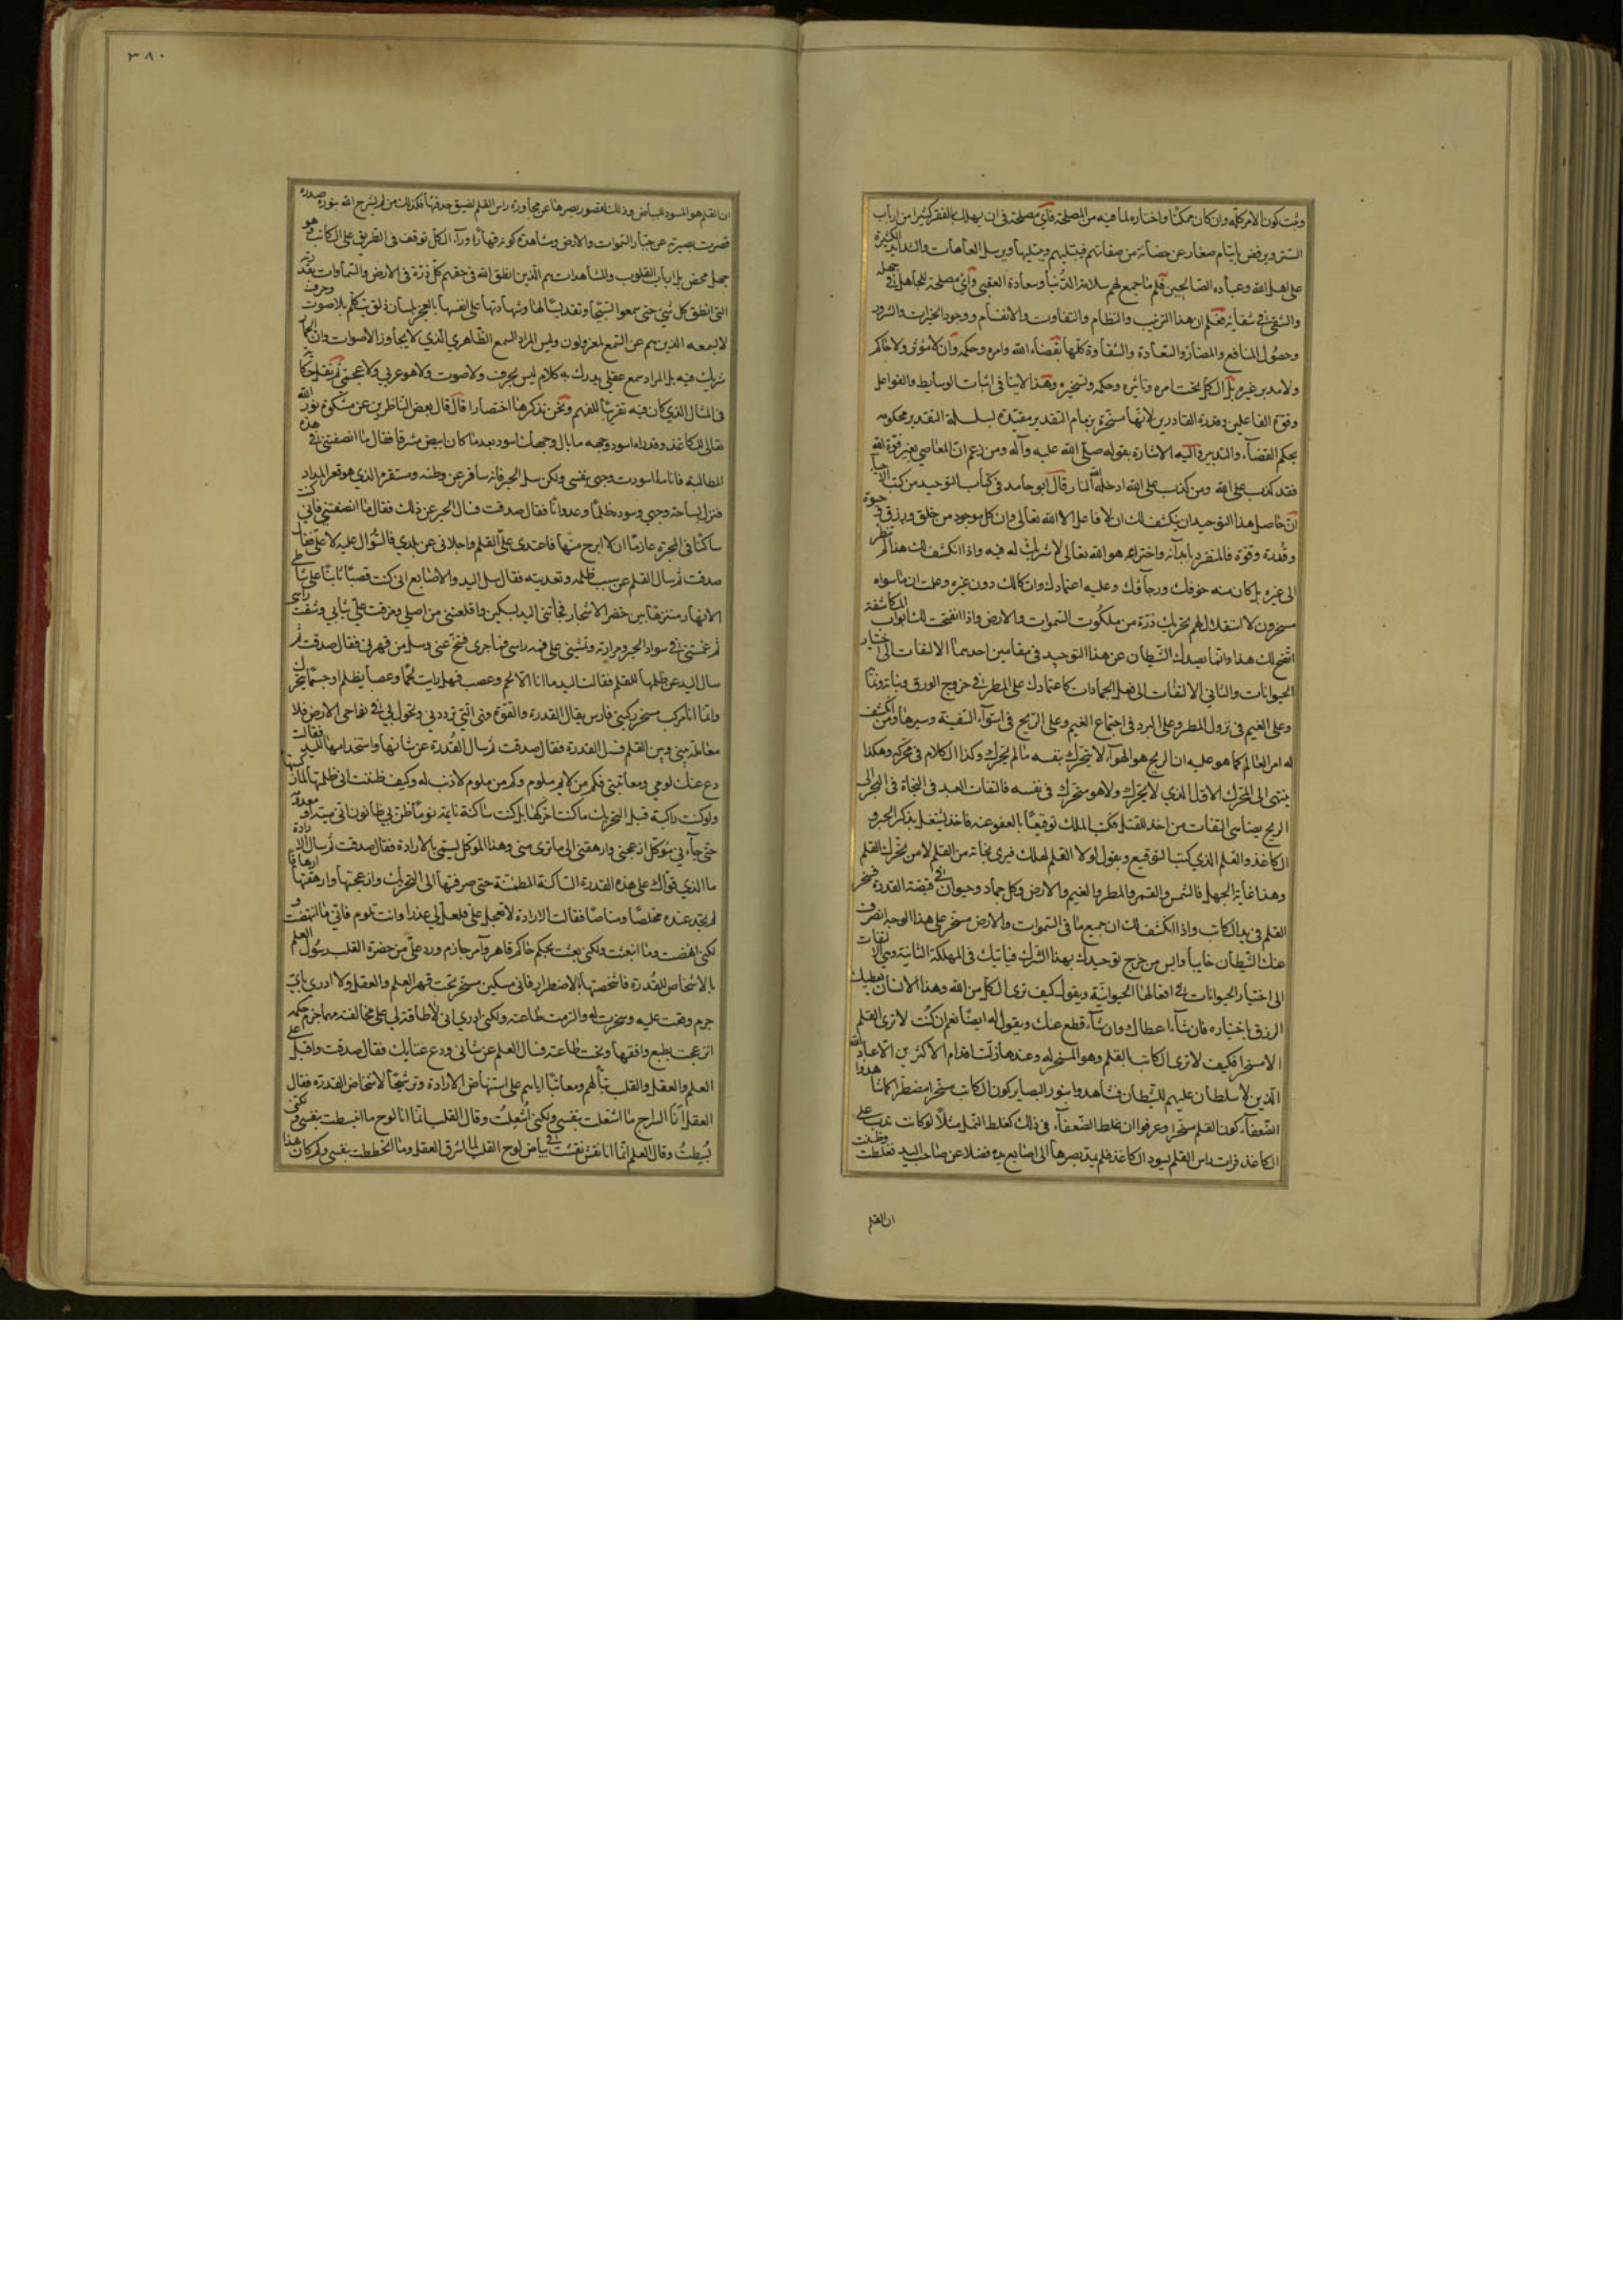 وثبت كون الامر كله وان كان ممكنا واختاره لما فيه من المصلحة فاي مصلحة فى ان يهلك بالفقر كثيرا من ارباب
الستر ويرفض بايتام صغار عن من صفاتهم فيبتليهم ويبتليها ويرسل العاهات والشدايد الكثيرة
على اهل الله وعباده الصالحين فلم ما جمع لهم سلامة الدنيا وسعادة العقبى واي مصلحة للجاهل فى جهله
والشقي فى شقائه فعلم ان هذا الترتيب والنظام والتفاوت والانقسام ووجود الخيرات والشرور
وحصول المنافع والمضار والسعادة والشقاوة كلها بقضاء الله وامره وحكمه وان لا مؤثر ولا حاكم
ولا مدبر غيره بل الكل تحت امره وتاثيره وحكمه وتسخيره وهذا لا ينافى اثبات الوسايط والفواعل
وقوة الفاعلين وقدرة القادرين لانها مسخرة بزمام التقدير مقيدة لسلسلة التقدير محكومه
بحكم القضاء والتدبير واليه الاشارة بقوله صلى الله عليه وآله ومن زعم ان المعاصي بغير قوة الله
فقد كذب على الله ومن كذب على الله ادخله الله النار قال ابو حامد فى كتاب التوحيد من كتب الاحيا
ان حاصل هذا التوحيد ان يكشف لك ان لا فاعل الا الله تعالى وان كل موجود من خلق ورزق وحيوة
وقدرة وقوة فالمنفرد بابدائه واختراعه هو الله تعالى لا شريك له فيه واذا انكشف لك هذا لم تنظر
الى غيره بل كان منه خوفك ورجاؤك وعليه اعتمادك واتكالك دون غيره وعلمت ان ما سواه
مسخرون لا استقلال لهم بتحريك ذرة من ملكوت السموات والارض واذا انفتحت لك ابواب المكاشفة
اتضح لك هذا وانما يصدك الشيطان عن هذا التوحيد فى مقامين احدهما الالتفات الى اختيار
الحيوانات والثاني الالتفات الى فعل الجمادات كاعتمادك على المطر فى خروج الورق ونباته ونمائه
وعلى الغيم فى نزول المطر وعلى البرد فى اجتماع الغيم وعلى الريح فى استواء السفينة وسيرها ومن انكشف
له امر العالم كما هو عليه ان الريح هو الهواء لا يتحرك بنفسه ما لم يحرك وكذا الكلام فى محركه وهكذا
ينتهى الى المحرك الاول الذي لا يحرك ولا هو متحرك فى نفسه فالتفات العبد فى النجاة فى البحر الى
الريح يضاهى التفات من اخذ للقتل فكتب الملك توقيعا بالعفو عنه فاخذ يشتغل بذكر الحبر و
الكاغذ والقلم الذي كتب التوقيع ويقول لولا القلم لهلكت فيرى نجاته من القلم لا من محرك القلم
وهذا غاية الجهل فالشمس والقمر والمطر والغيم والارض وكل جماد وحيوان فى قبضة القدرة مسخر
القلم فى يد الكاتب واذا انكشف لك ان جميع ما فى السموات والارض مسخر على هذا الوجه انصرف
عنك الشيطان خايبا وايس من مزج توحيدك بهذا الشرك فياتيك فى المهلكة الثانية وهي الالتفات
الى اختيار الحيوانات فى افعالها الحيوانية ويقول كيف ترى الكل من الله وهذا الانسان يعطيك
الرزق باختياره فان شاء اعطاك وان شاء قطع عنك ويقول له ايضا نعم ان كنت لا ترى القلم
الا مسخرا فكيف لا ترى الكاتب بالقلم وهو المسخر له وعند هذا زلت اقدام الاكثرين الا عباد الله
الذين لا سلطان عليهم للشيطان فشاهدوا بنور البصاير كون الكاتب مسخرا مضطرا كما شاهدوا
الضعفاء كون القلم مسخرا وعرفوا ان غلط الضعفاء فى ذلك كغلط النمل مثلا لو كانت تدب على
الكاغذ فرات راس القلم يسود الكاغذ فلم يمتد بصرها الى اصابع يده فضلا عن صاحب اليد فغلطت وظنت
ان القلم
٣٨٠
ان القلم هو المسود للبياض وذلك لقصور بصرها عن مجاوزة راس القلم لضيق حدقتها فكذلك من لم يشرح الله بنوره صدره
قصرت بصيرته عن جبار السموات والارض ومشاهدة كونه قهارا وراء الكل فوقف فى الطريق على الكاتب وهو
جهل محض بل ارباب القلوب والمشاهدات هم الذين انطق الله فى حقهم كل ذرة فى الارض والسماوات بقدرته
التى انطق كل شيء حتى سمعوا تسبيحها وتقديسها لها وشهادتها على انفسها بالعجز بلسان ذلق يتكلم بلا صوت وحرف
لا يسمعه الذين هم عن السمع لمعزولون وليس المراد السمع الظاهري الذي لا يجاوز الاصوات وان الحمار
شريك فيه بل المراد سمع عقلي يدرك به كلام ليس بحرف ولا صوت ولا هو عربي ولا عجمي ثم نقل حكاية
فى المثال الذي كان فيه تقريبا للفهم ونحن نذكر هنا اختصارا قال قال بعض الناظرين عن مشكوة نور الله
تعالى للكاغذ وقد راه اسود وجهه ما بال وجهك اسود بعد ما كان ابيض مشرقا فقال ما انصفتنى فى هذه
المطالبة فانا ما اسودت وجهى بنفسى ولكن سل الحبر فانه سافر عن وطنه ومستقره الذي هو قعر المداد
فنزل بساحة وجهي وسوده ظلما وعدوانا فقال صدقت فسال الحبر عن ذلك فقال ما انصفتنى فانى كنت
ساكنا فى المحبرة عازما ان لا ابرح منها فاعتدى على القلم واجلانى عن بلدي فالسؤال عليه لا على فقال
صدقت ثم سال القلم عن سبب ظلمه وتعديته فقال سل اليد والاصابع انى كنت قصبا ثابتا على شاطى
الانهار متنزها بين خضر الاشجار فجاءتنى اليد بسكين واقلعتنى من اصلي ومزقت علي ثيابي وشقت راسى
ثم غمستنى فى سواد الحبر ومرارته وتمشينى على قمة راسى فتنح عنى وسل من قهرنى فقال صدقت ثم
سال اليد عن ظلمها للقلم فقالت اليد ما انا الا لحم وعصب فهل رايت لحما وعصبا يظلم او جسما يتحرك
وانما انا مركب مسخر ركبنى فارس يقال القدرة والقوة وهى التى ترددنى وتجول بى فى نواحى الارض فلا
معاملة بينى وبين القلم فسل القدرة فقال صدقت ثم سال القدرة عن شانها واستخدامها لليد فقالت
دع عنك لومي ومعاتبتى فكم من لايم ملوم وكم من ملوم لا ذنب له وكيف ظننت انى ظلمتها لما ركبتها
ولو كنت راكبة قبل التحريك ما كنت احركها بل كنت ساكنة نايمة نوما ظن بى ظانون انى ميتة او معدومة
حتى جاءنى موكل ازعجنى وارهقنى الى ما ترى منى وهذا الموكل يسمى بالارادة فقال صدقت ثم سال الارادة
ما الذي قواك على هذه القدرة الساكنة المطمئنة حتى صرفتها الى التحريك وازعجتها وارهقتها ارهاقا
لم تجد عنده مخلصا ومناصا فقالت الارادة لا تعجل على فلعل لى عذرا وانت تلوم فانى ما انتهضت و
لكنى انهضت وما انبعثت ولكنى بعثت بحكم حاكم قاهر وامر جازم ورد على من حضرة القلب رسول العلم
بالاشخاص للقدرة فاشخصتها بالاضطرار فانى مسكين مسخر تحت قهر العلم والعقل ولا ادرى باي
جرم وقفت عليه وسخرت له والزمت طاعته ولكنى ادري انى لا طاقة لي على مخالفته مهما جزم حكمه
وتحت طاعته فسال العلم عن شانى ودع عتابك فقال صدقت واقبل على
العلم والعقل والقلب مطالبا لهم ومعاتبا اياهم على استنهاض الارادة وترشيحا لاشخاص القدرة فقال
العقل انا السراج ما اشتعلت بنفسى ولكنى اشعلت وقال القلب انما انا لوح ما انبسطت بنفسى ولكنى
بسطت وقال العلم انما انا نقش نقشت فى بياض لوح القلب لما اشرق العقل وما انخططت بنفسى وكم كان هذا